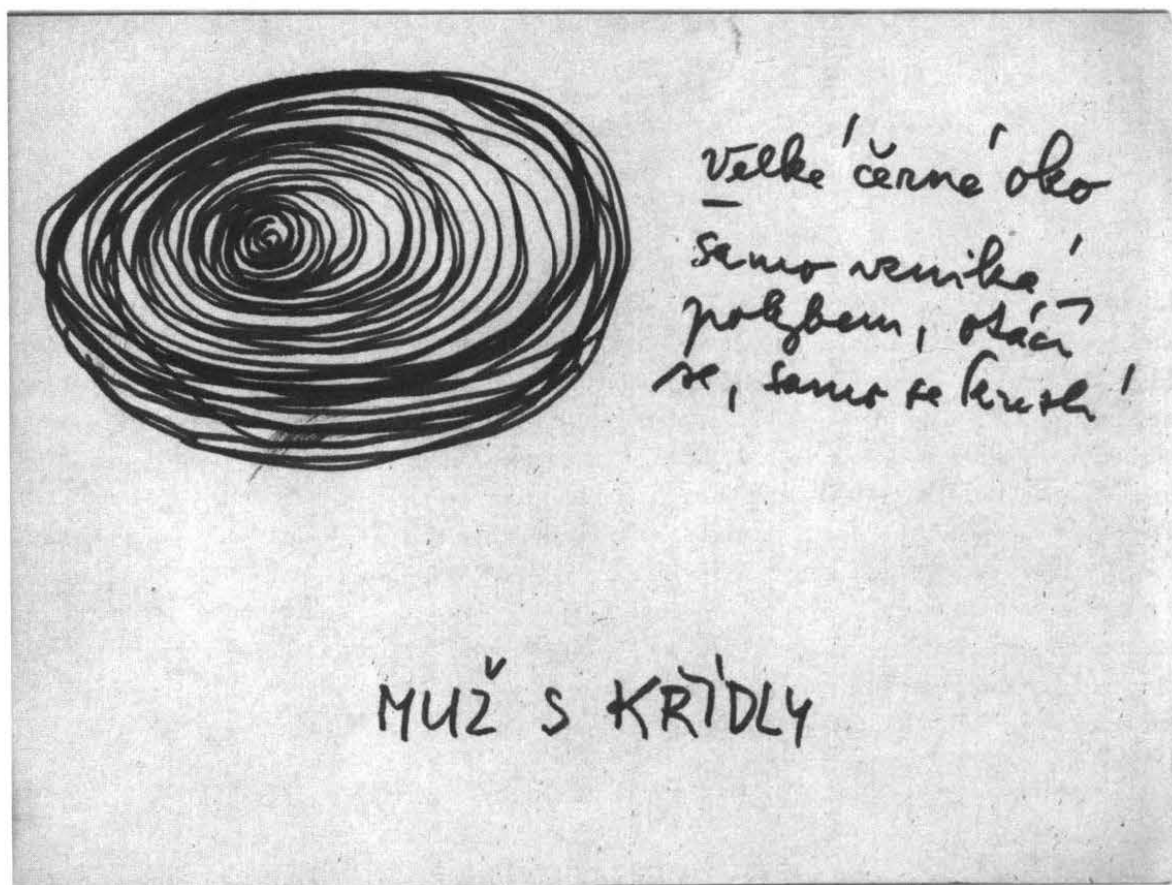 Velké černé oko
samo vzniká
pohybem, otáčí
se, samo se kreslí
MUŽ S KŘÍDLY